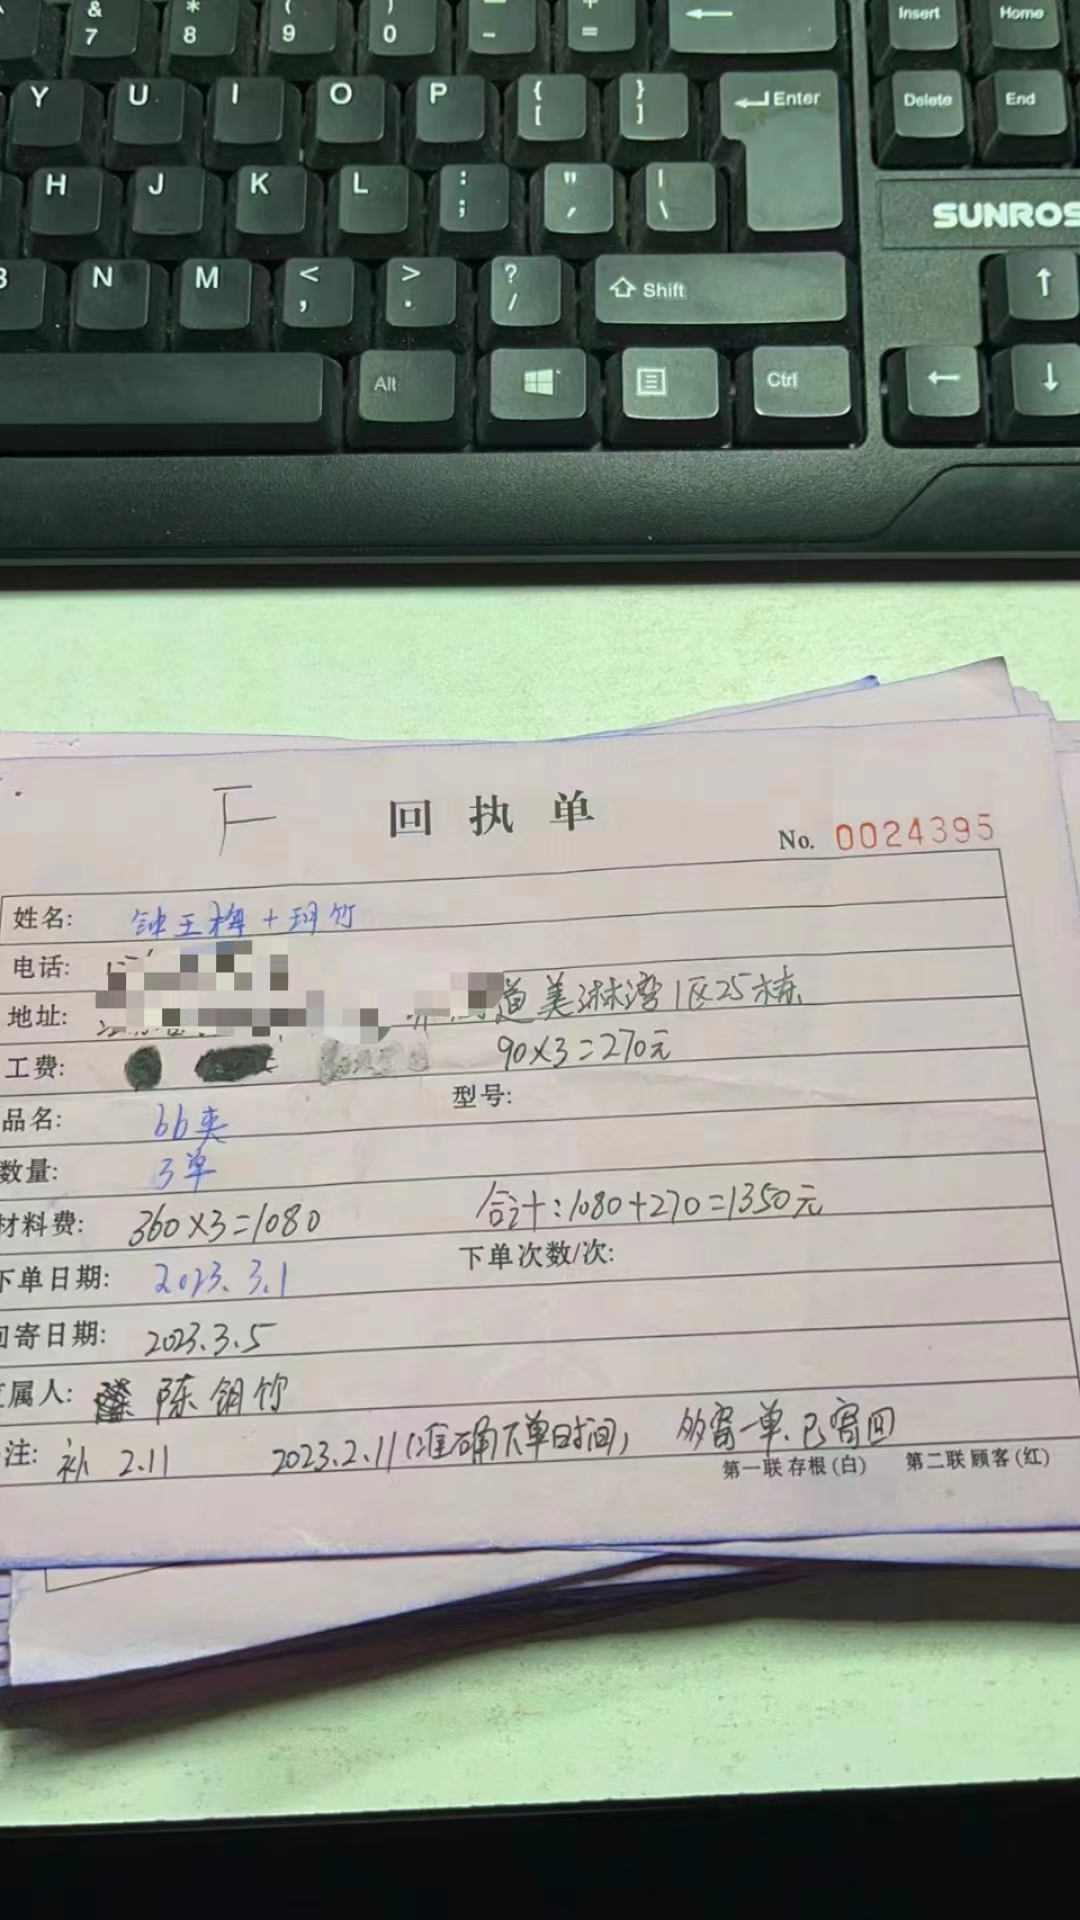 & 7 * 8 ( 9 ) 0 — - + = ← Insert Home
Y U I O P { [ } ] Enter Delete End
H J K L : ; " ' | \
SUNROS
B N M < , > . ? / Shift ↑
Alt Ctrl ← ↓
F 回执单
No. 0024395
姓名: 钟王梅+玥竹
电话:
地址: 道美淋湾1区25栋
工费: 90×3=270元
品名: bb夹 型号:
数量: 3单
材料费: 360×3=1080 合计:1080+270=1350元
下单日期: 2023.3.1 下单次数/次:
回寄日期: 2023.3.5
属人: 陈钥竹
注: 补 2.11 2023.2.11(准确下单时间) 多寄一单.已寄回
第一联 存根(白) 第二联 顾客(红)